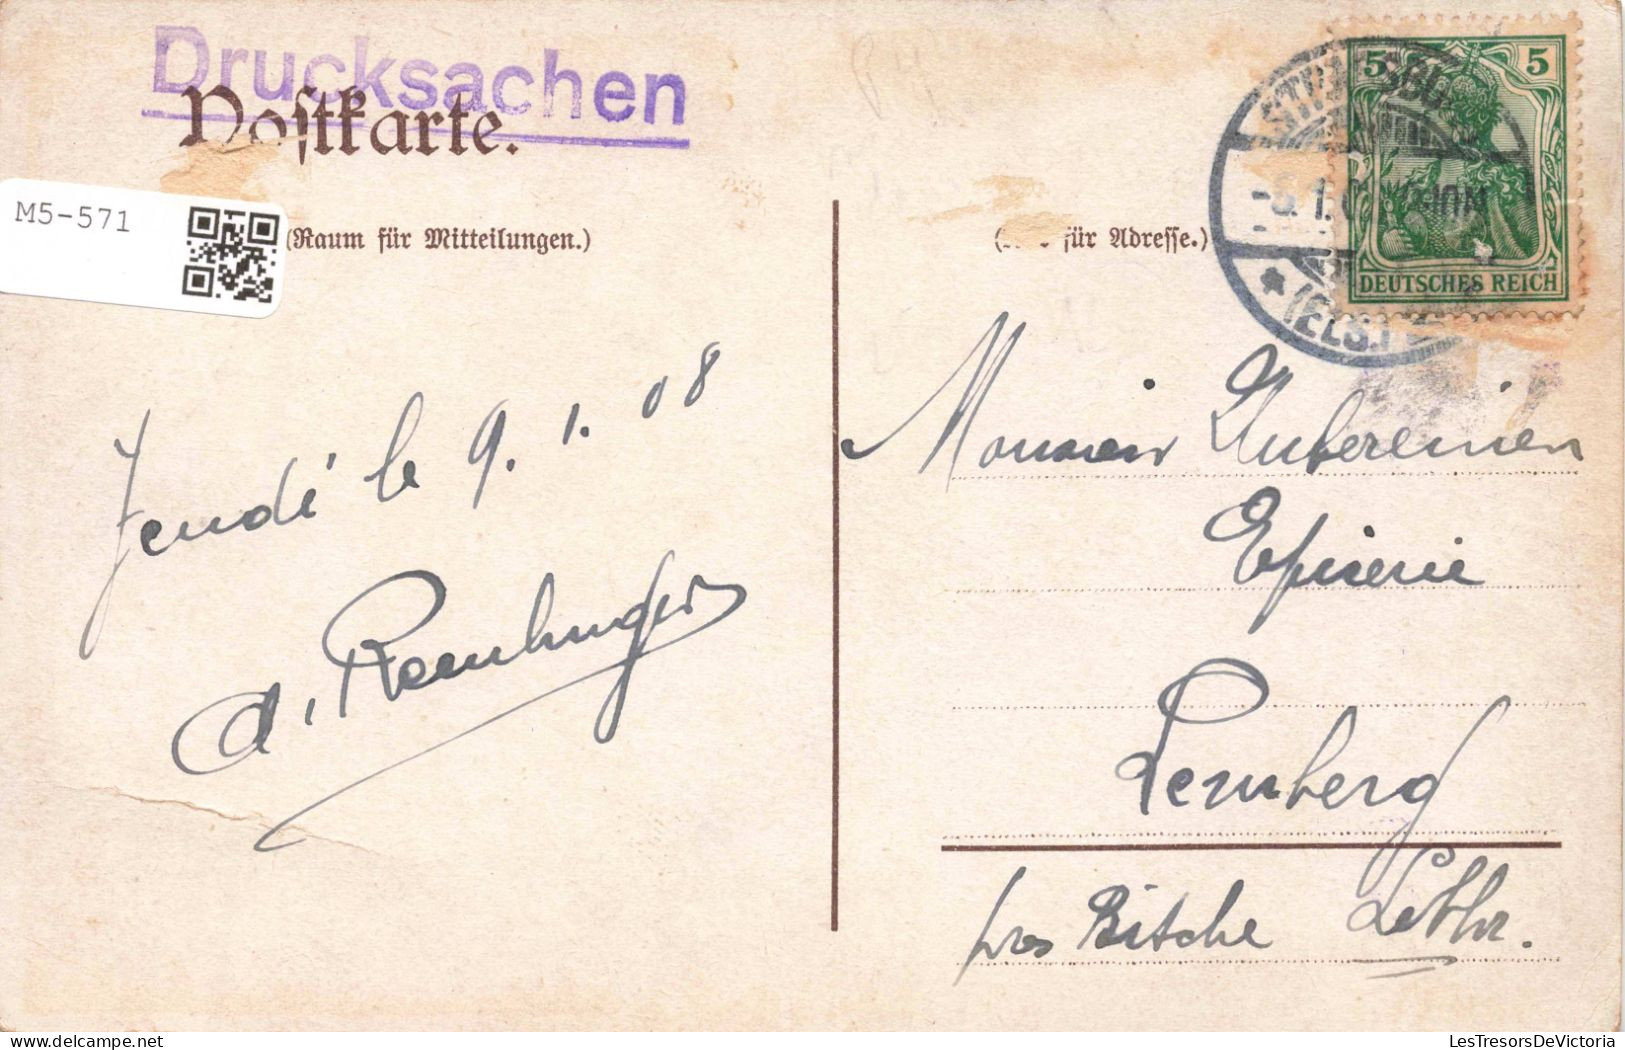 Drucksachen
Postkarte.
M5-571
(Raum für Mitteilungen.)
für Adresse.)
5 5
DEUTSCHES REICH
(ELS.)
Jeudi le 9. 1. 08
Monsieur
Epicerie
Lemberg
près Bitche Lothr.
LesTresorsDeVictoria